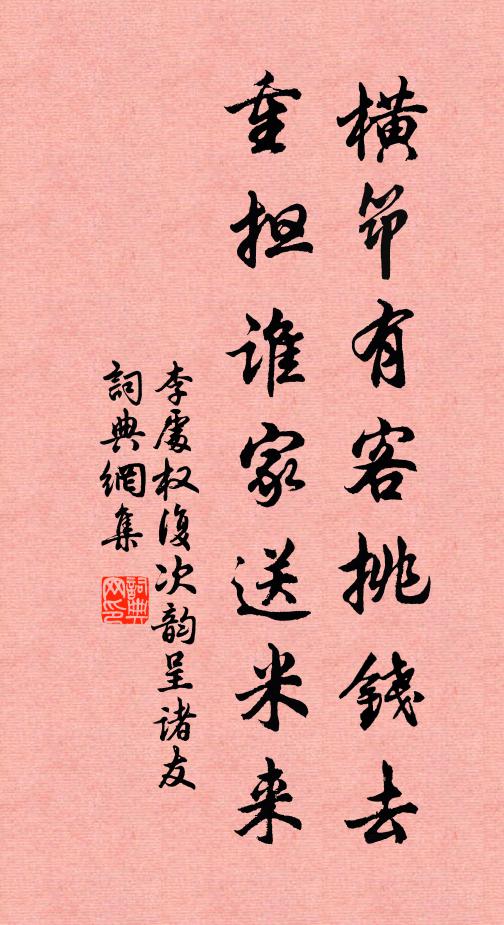 横筇有客挑錢去
重担谁家送米来
李處权復次韵呈诸友
詞典網集
詞典
网印